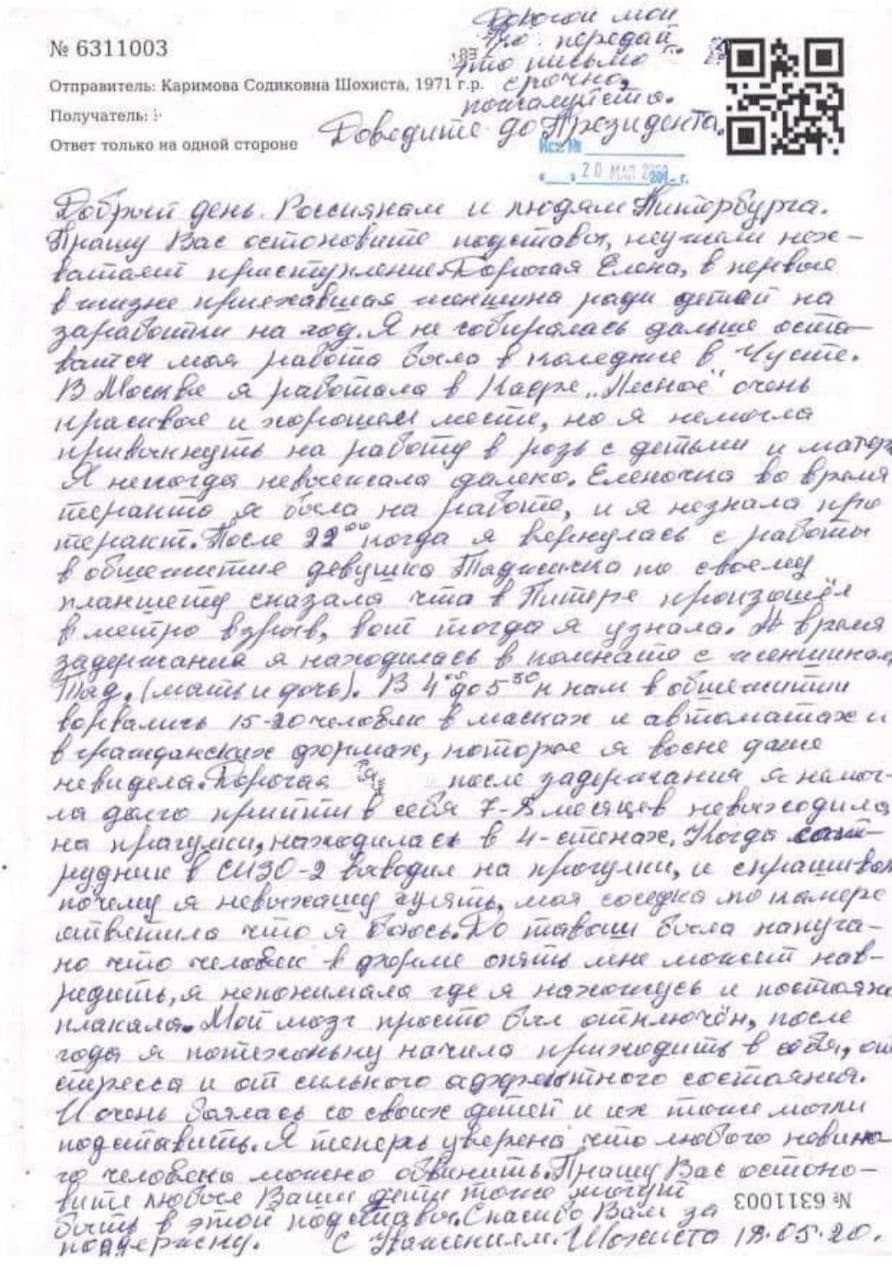 Дорогой мой
передай
№ 6311003
это письмо
срочно,
Отправитель: Каримова Содиковна Шохиста, 1971 г.р.
пожалуйста.
Получатель:
Доведите до Президента.
Ответ только на одной стороне
Исх №
20 МАЯ
Добрый день Россиянам и людям Пинторбурга.
Прашу Вас остоновите подставы, неужели нех-
ватаеит приступление. Дорогая Елена, в первые
в жизне приехавшая женщина ради детей на
заработки на год. Я не собиралась дальше оста-
ватся моя работа была в коледже в Чусте.
В Москве я работала в Кафде "Лесное" очень
красивое и хорошем месте, но я немогла
привыкнуть на работу в розь с детьми и матер
Я некогда невыежала далеко. Еленочка во время
теракта я была на работе, и я незнала про
теракт. После 22⁰⁰ когда я вернулась с работы
в обшежитие девушка Таджичка по своему
планшету сказала что в Питере произошёл
в метро взрыв, вот тогда я узнала. В время
задержания я находилась в комнате с женшиной
Тад. (мать и дочь). В 4⁰⁰ до 5³⁰ к нам в обшежитии
ворвались 15-20 человек в масках и автоматах и
в гражданских формах, которое я восне даже
невидела. Дорогая после задержания я немог-
ла долго прийти в себя 7-8 месяцев невыходила
на прагулки, находилась в 4-стенах. Когда сот-
рудник в СИЗО-2 выводил на прогулки, и спрашивал
почему я невыхажу гулять, моя соседка по камере
ответила что я боюсь. До такой была напуга-
но что человек в форме опять мне может нав-
редить, я непонимала где я нахожусь и постаяно
плакала. Мой мозг просто был отключён, после
года я потехоньку начила приходить в себя, от
стресса и от сильного аффектного состояния.
И очень боялась со своих детей и их тоже могли
подставить. Я теперь уверена что любого невино-
го человека можно обвинить. Прашу Вас остоно-
вите любые Ваши дети тоже могут
быть в этой подставы. Спасибо Вам за
№ 6311003
поддержку. С Уважением. Шохисто 18.05.20.